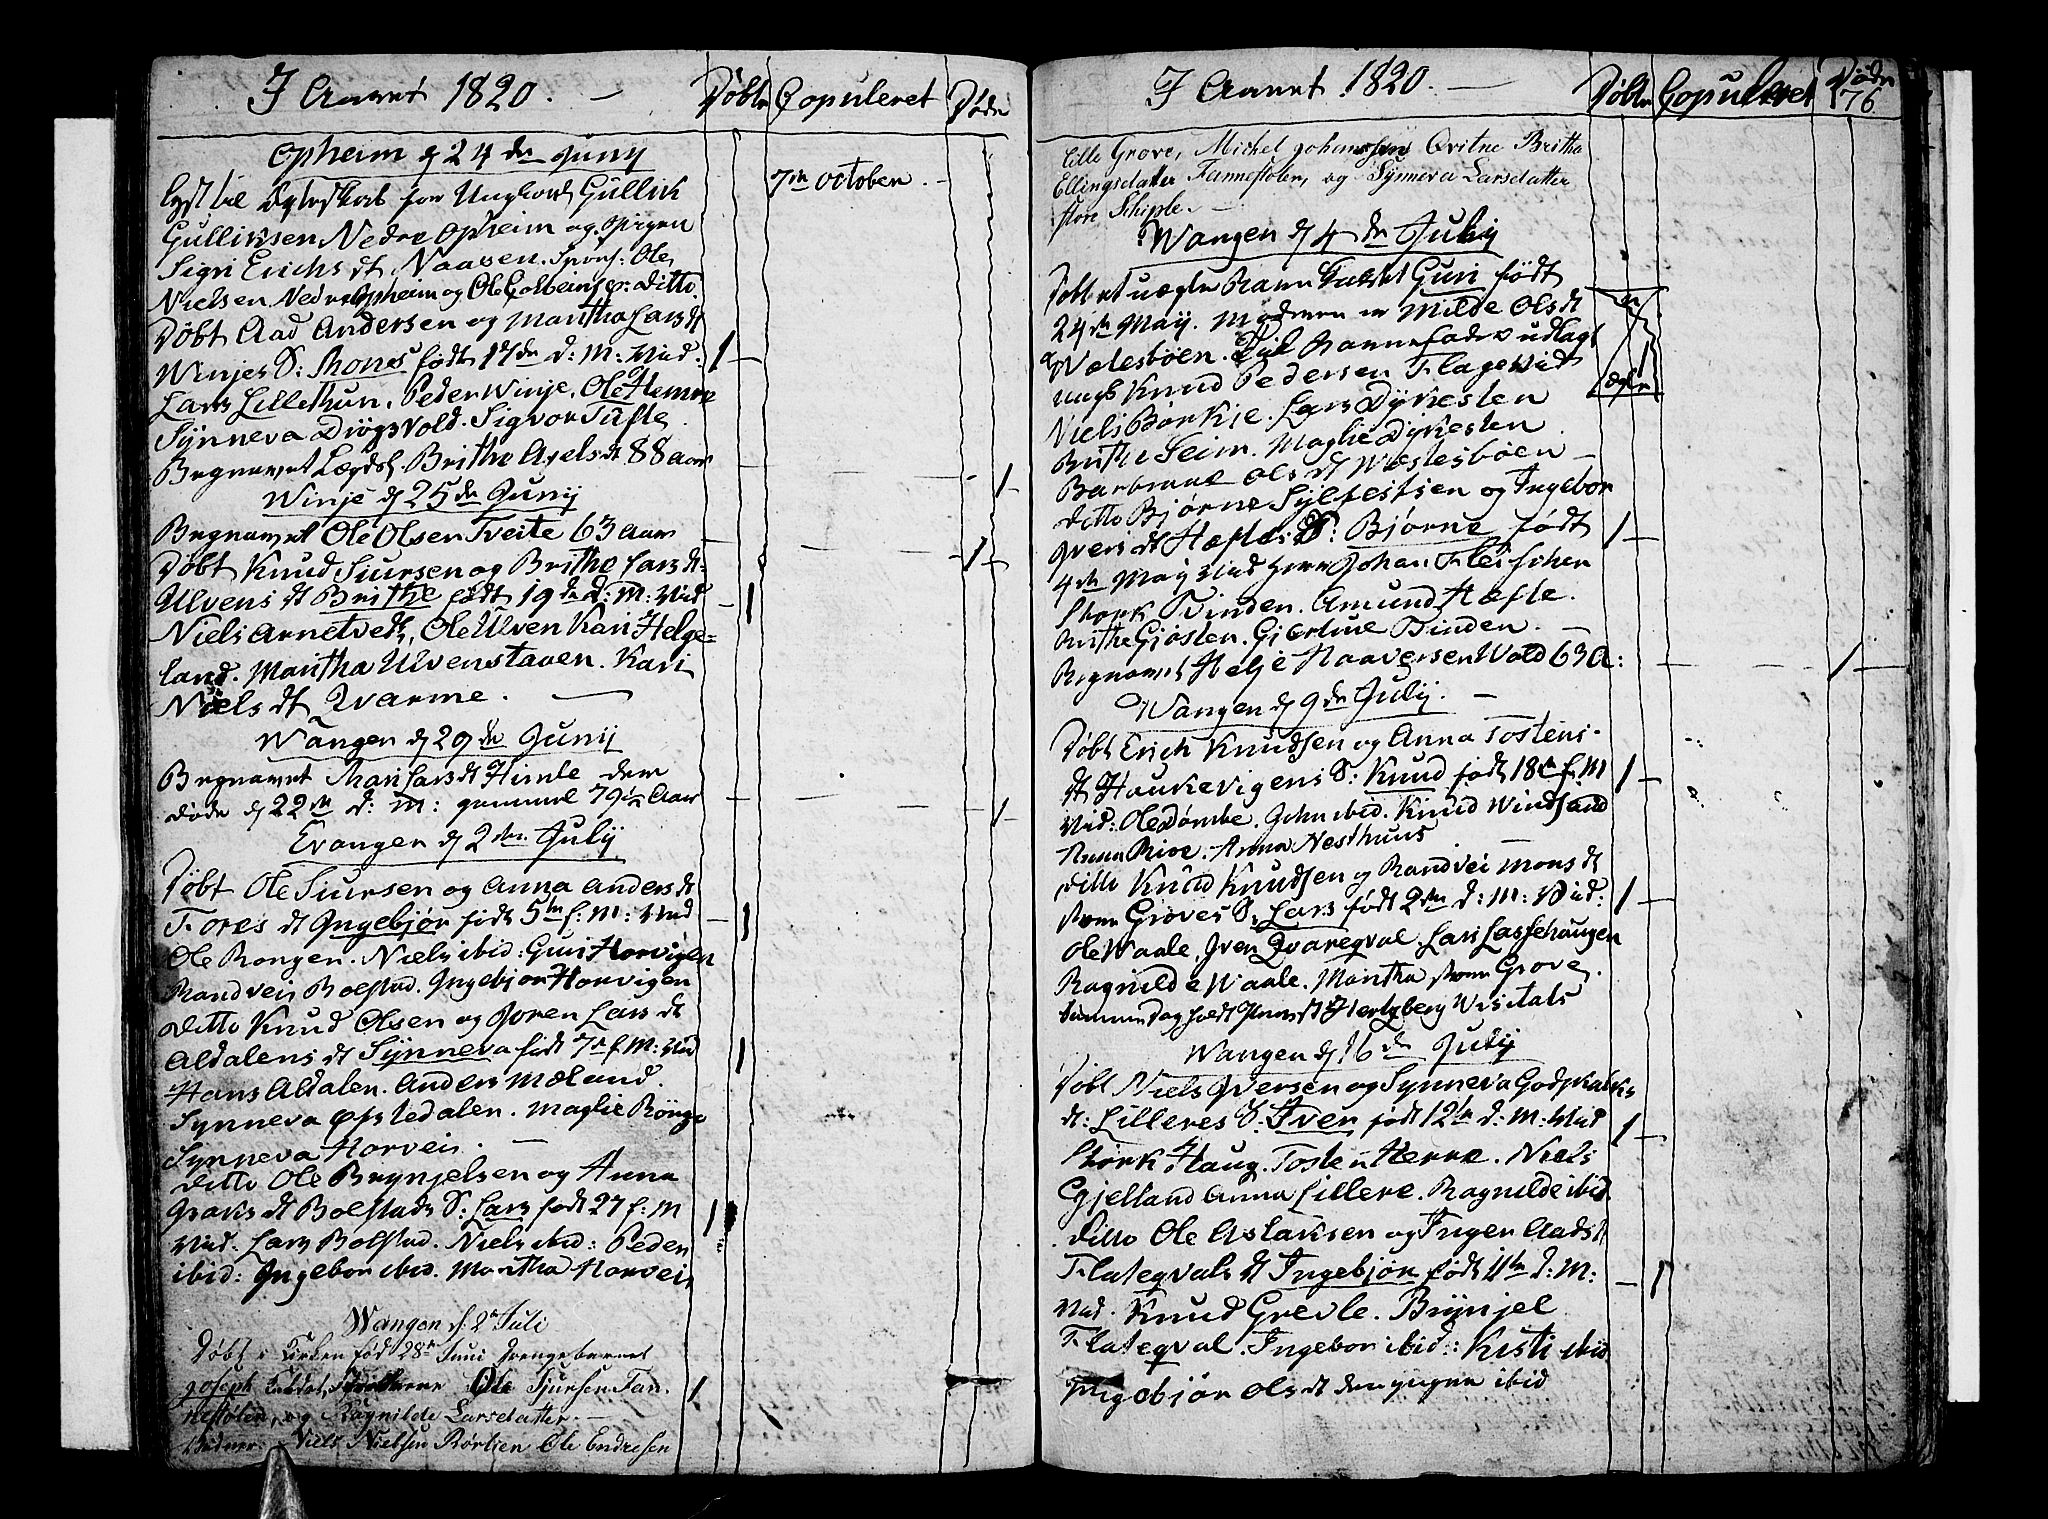 I Aaret 1820. —
Døbte Copuleret Døde
Opheim d 24de Juny
Lyst til Ægteskab for Ungkarl Gullik 7de October.
Gulliksen Nedre Opheim og Pigen
Sigri Erichs dt Naaven. Spons: Ole
Nielsen Nedre Opheim og Ole ditto.
Døbt Aad Andersen og Maritha Lars dt
Winjes S: Mons født 17de d: M: Vid: 1
Lars Lillethun, Peder Winje, Ole Hemre
Synneva Drøgsvold. Sigvor Tufte
Begravet Lægdsl. Brithe Axels dt 88 aar 1
Winje d 25de Juny
Begravet Ole Olsen Tveite 63 aar 1
Døbt Knud Siursen og Brithe Lars dt:
Ulvens dt Brithe født 19de d: M: Vid 1
Niels Arnetvedt, Ole Ulven Kari Helge=
land. Maritha Ulvenstaven. Kari
Niels dt Qvarme.
Wangen d 29de Juny
Begravet Mari Lars dt Himle dem
døde d 22de d: M: gammel 79½ Aar 1
Evangen d 2den July
Døbt Ole Siursen og Anna Anders dt
Fores dt Ingebjør født 5te f: M: Vid 1
Ole Rongen. Niels ibid: Guri Horvigen
Randveis Bolstad. Ingebjør Horvigen
ditto Knud Olsen og Joren Lars dt
Aldalens dt Synneva født 7de f. M: Vid 1
Hans Aldalen. Anders Mæland.
Synneva Øfstedalen. Maglie Rønge
Synneva Horvei.
ditto Ole Brynjelsen og Anna
dt Bolstads S: Lars født 27 f: M 1
Vid: Lars Bolstad. Niels ibid: Peder
ibid: Ingebor ibid. Maritha Horvei
Wangen d: 2de Juli
Døbt i Kirken fød 28de Juni Drengebarnet
Joseph kaldet, Forældrene Ole Sjursen Fan- 1
nestølen, og Ragnilde Larsdatter. —
Vidner: Niels Nielsen Rørlien Ole Endresen
I Aaret 1820. —
Døbte Copuleret Døde
76
Lille Grove, Michel Johannesen Qvitne Britha
Ellingsdatter Fannestølen, og Synneva Larsdatter
store Schiple. —
Wangen d 4de July
Døbt et uægte Barn kaldet Guri født
24de May. Moderen er Milde Ols dt
Wælesbøen. Til Barnefader udlagt
ungk Knud Pedersen Flage Vid 1
Niels Børkje. Lars Dykesten
Brithe Seim. Maglie Dykesten
Barbroe Ols dt Wæstesbøen —
ditto Bjørne Sylfestsen og Ingebor
Ivers dt Hæfte S: Bjørne født 1
4de May Vid Herr Johan Fleischer
Størk Tvinden. Amund Hæfte.
Brithe Gjøsten. Giertrue Tvinden.
Begravet Helje Haaversen Wold 63 a: 1
Wangen d 9de July. —
Døbt Erich Knudsen og Anna Tostens-
dt Haukevigens S: Knud født 18de f: M 1
Vid: Ole Dømbe. John ibid. Knud Windsand
Anna Rive. Anna Nesthuus
ditto Knud Knudsen og Randvei Mons dt
store Groves S: Lars født 2den d: M: Vid: 1
Ole Waale, Iven Qvareqval. Lars Lassehaugen
Ragnilde Waale. Maritha store Grove.
samme Dag holdt Provst Hertzberg Visitats
Wangen d 16de July
Døbt Niels Iversen og Synneva Godskalks
dt: Lilleres S: Iver født 12te d: M: Vid 1
Størk Haug. Tosten Herre. Niels
Gjelland Anna Lillere. Ragnilde ibid.
ditto Ole Aslaksen og Ingen Aads dt
Flateqvals dt Ingebjør født 11te d: M: 1
Vid. Knud Grevle. Brynjel
Flateqval. Ingebor ibid: Kisti ibid
Ingebjør Ols dt den yngre ibid